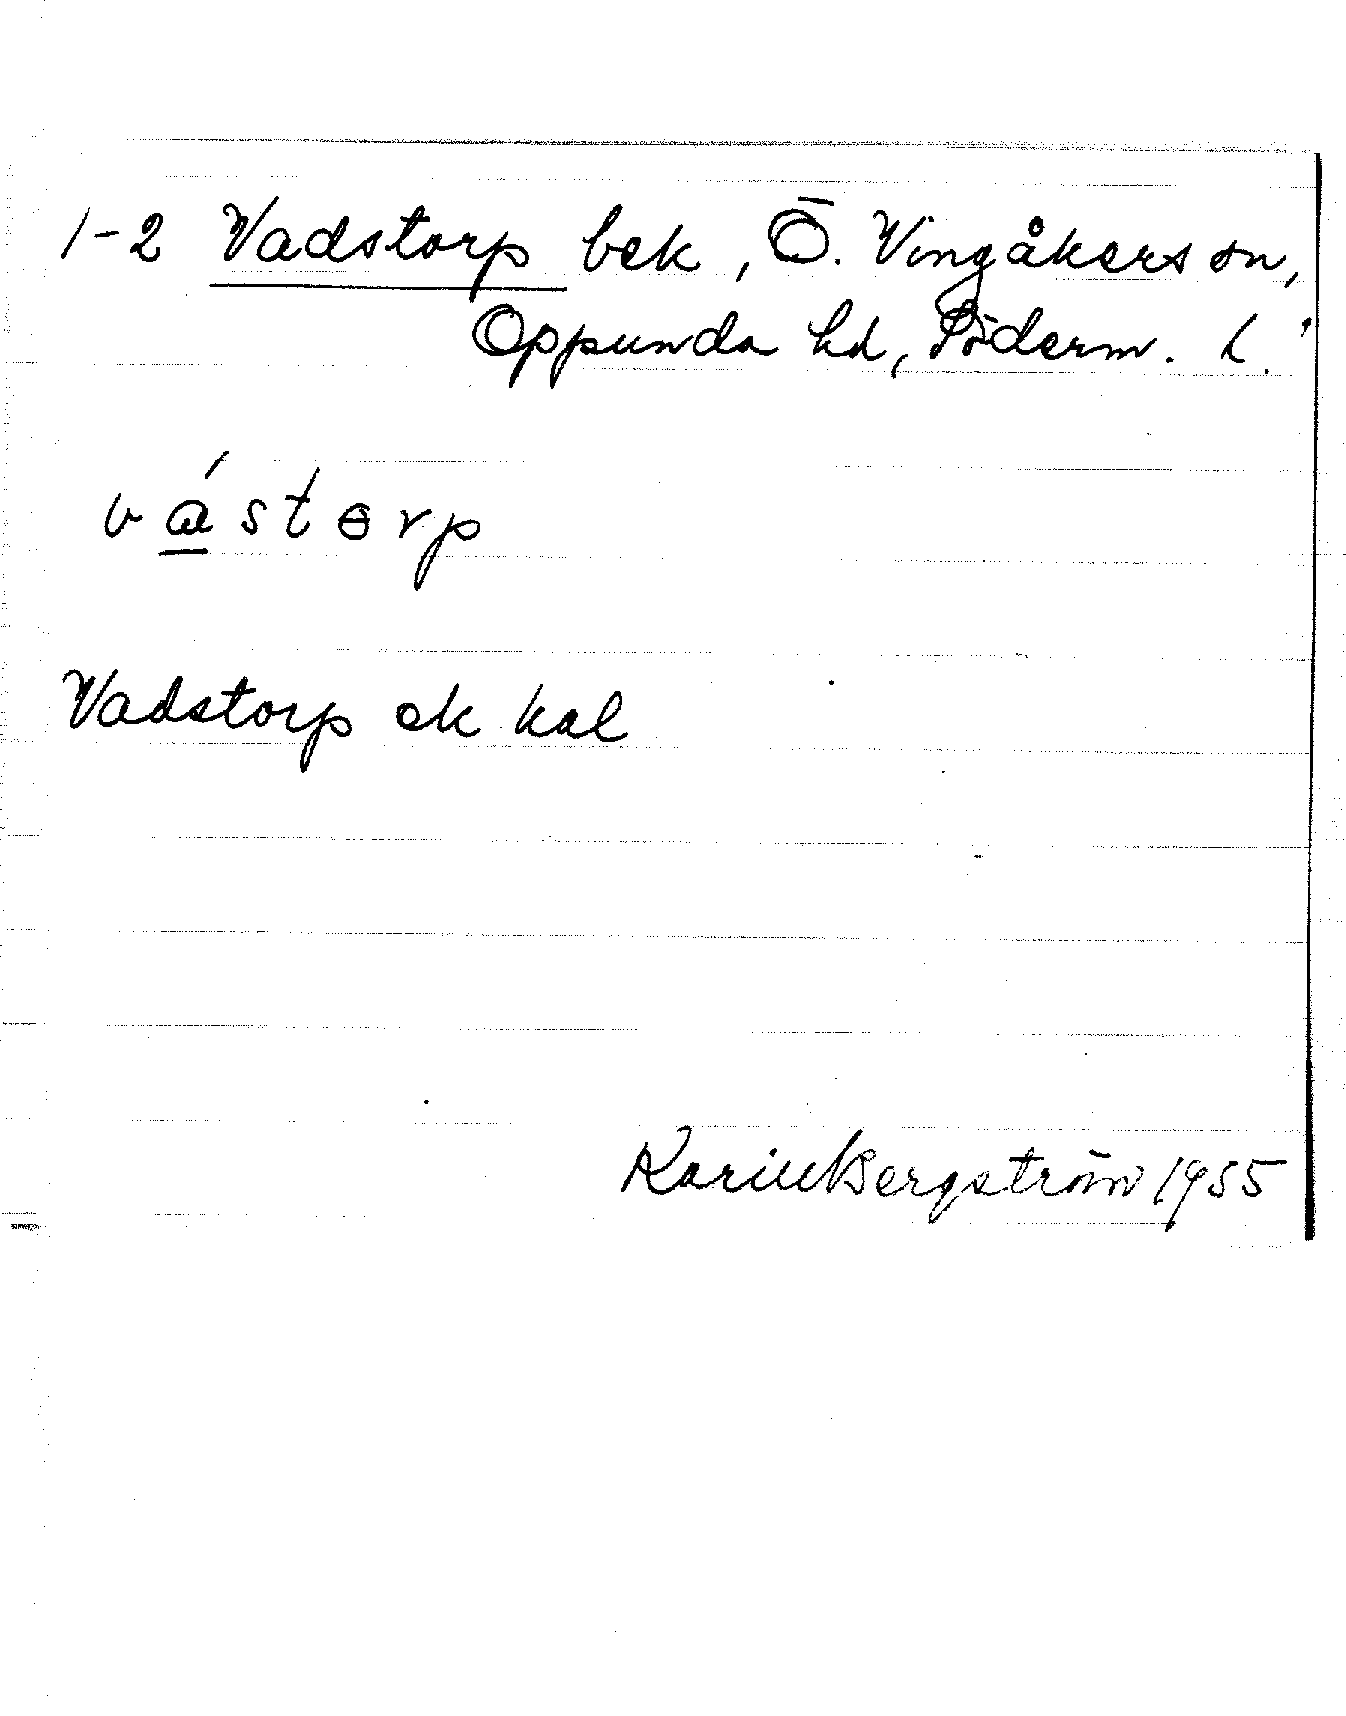 1-2 Vadstorp bek, Ö. Vingåkers sn,
Oppunda hd, Söderm. L.
vástɵrp
Vadstorp ek kal
Karin Bergström 1955